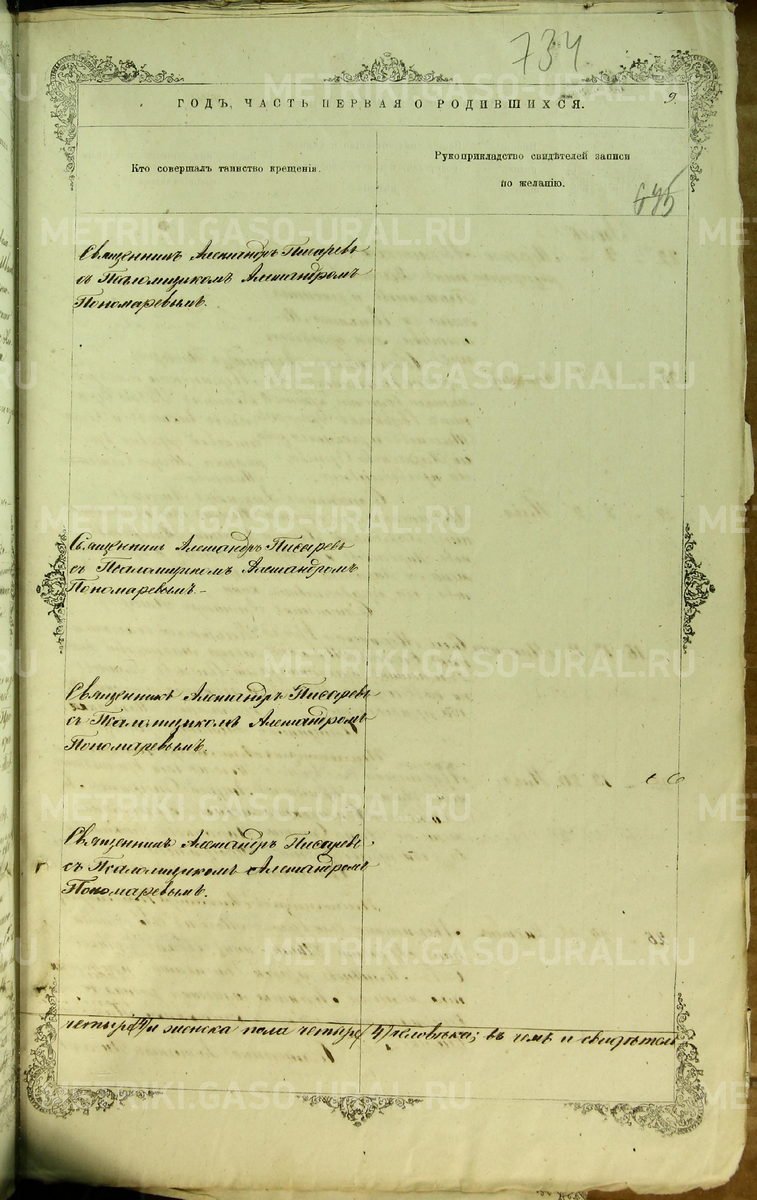 734
ГОДЪ, ЧАСТЬ ПЕРВАЯ О РОДИВШИХСЯ.
9.
Кто совершалъ таинство крещенія.
Рукоприкладство свидѣтелей записи
по желанію.
Священникъ Александръ Писаревъ
съ Псаломщикомъ Александромъ
Пономаревымъ.
Священникъ Александръ Писаревъ
съ Псаломщикомъ Александромъ
Пономаревымъ.-
Священникъ Александръ Писаревъ
съ Псаломщикомъ Александромъ
Пономаревымъ.
Священникъ Александръ Писаревъ
съ Псаломщикомъ Александромъ
Пономаревымъ.
четыре (4) и женска пола четыре (4) человѣка; въ чемъ и свидѣтель
METRIKI.GASO-URAL.RU